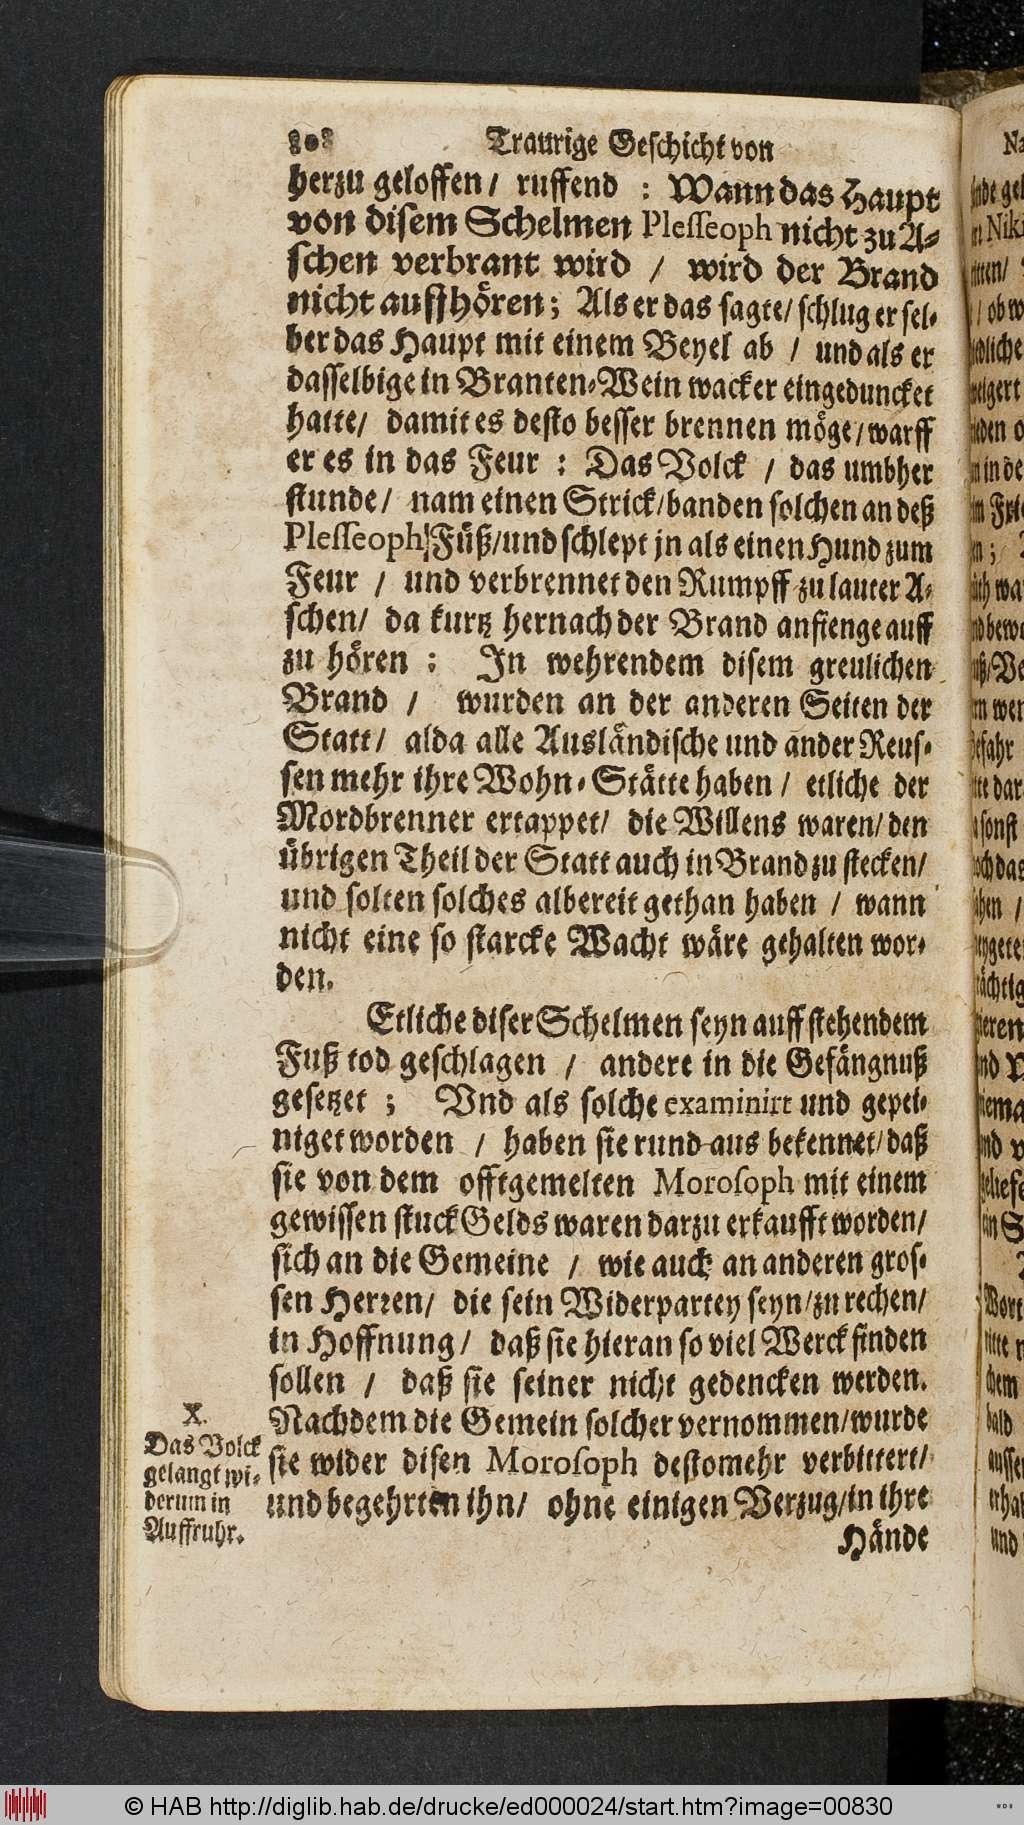 808 Traurige Geschicht von
herzu geloffen/ ruffend : Wann das Haupt
von disem Schelmen Plesseoph nicht zu A-
schen verbrant wird / wird der Brand
nicht auffhören; Als er das sagte/ schlug er sel-
ber das Haupt mit einem Beyel ab / und als er
dasselbige in Branten-Wein wacker eingeduncket
hatte/ damit es desto besser brennen möge/ warff
er es in das Feur : Das Volck / das umbher
stunde/ nam einen Strick/ banden solchen an deß
Plesseoph Füß/ und schlept jn als einen Hund zum
Feur / und verbrennet den Rumpff zu lauter A-
schen/ da kurtz hernach der Brand anfienge auff
zu hören : In wehrendem disem greulichen
Brand / wurden an der anderen Seiten der
Statt/ alda alle Ausländische und ander Reus-
sen mehr ihre Wohn-Stätte haben / etliche der
Mordbrenner ertappet/ die Willens waren/ den
übrigen Theil der Statt auch in Brand zu stecken/
und solten solches albereit gethan haben / wann
nicht eine so starcke Wacht wäre gehalten wor-
den.
Etliche diser Schelmen seyn auff stehendem
Fuß tod geschlagen / andere in die Gefängnuß
gesetzet ; Vnd als solche examinirt und gepei-
niget worden / haben sie rund aus bekennet/ daß
sie von dem offtgemelten Morosoph mit einem
gewissen stuck Gelds waren darzu erkaufft worden/
sich an die Gemeine / wie auch an anderen gros-
sen Herren/ die sein Widerpartey seyn/ zu rechen/
in Hoffnung/ daß sie hieran so viel Werck finden
sollen / daß sie seiner nicht gedencken werden.
Nachdem die Gemein solcher vernommen/ wurde
sie wider disen Morosoph destomehr verbittert/
und begehrten ihn/ ohne einigen Verzug/ in ihre
Hände
X.
Das Volck
gelangt wi-
derum in
Auffruhr.
© HAB http://diglib.hab.de/drucke/ed000024/start.htm?image=00830